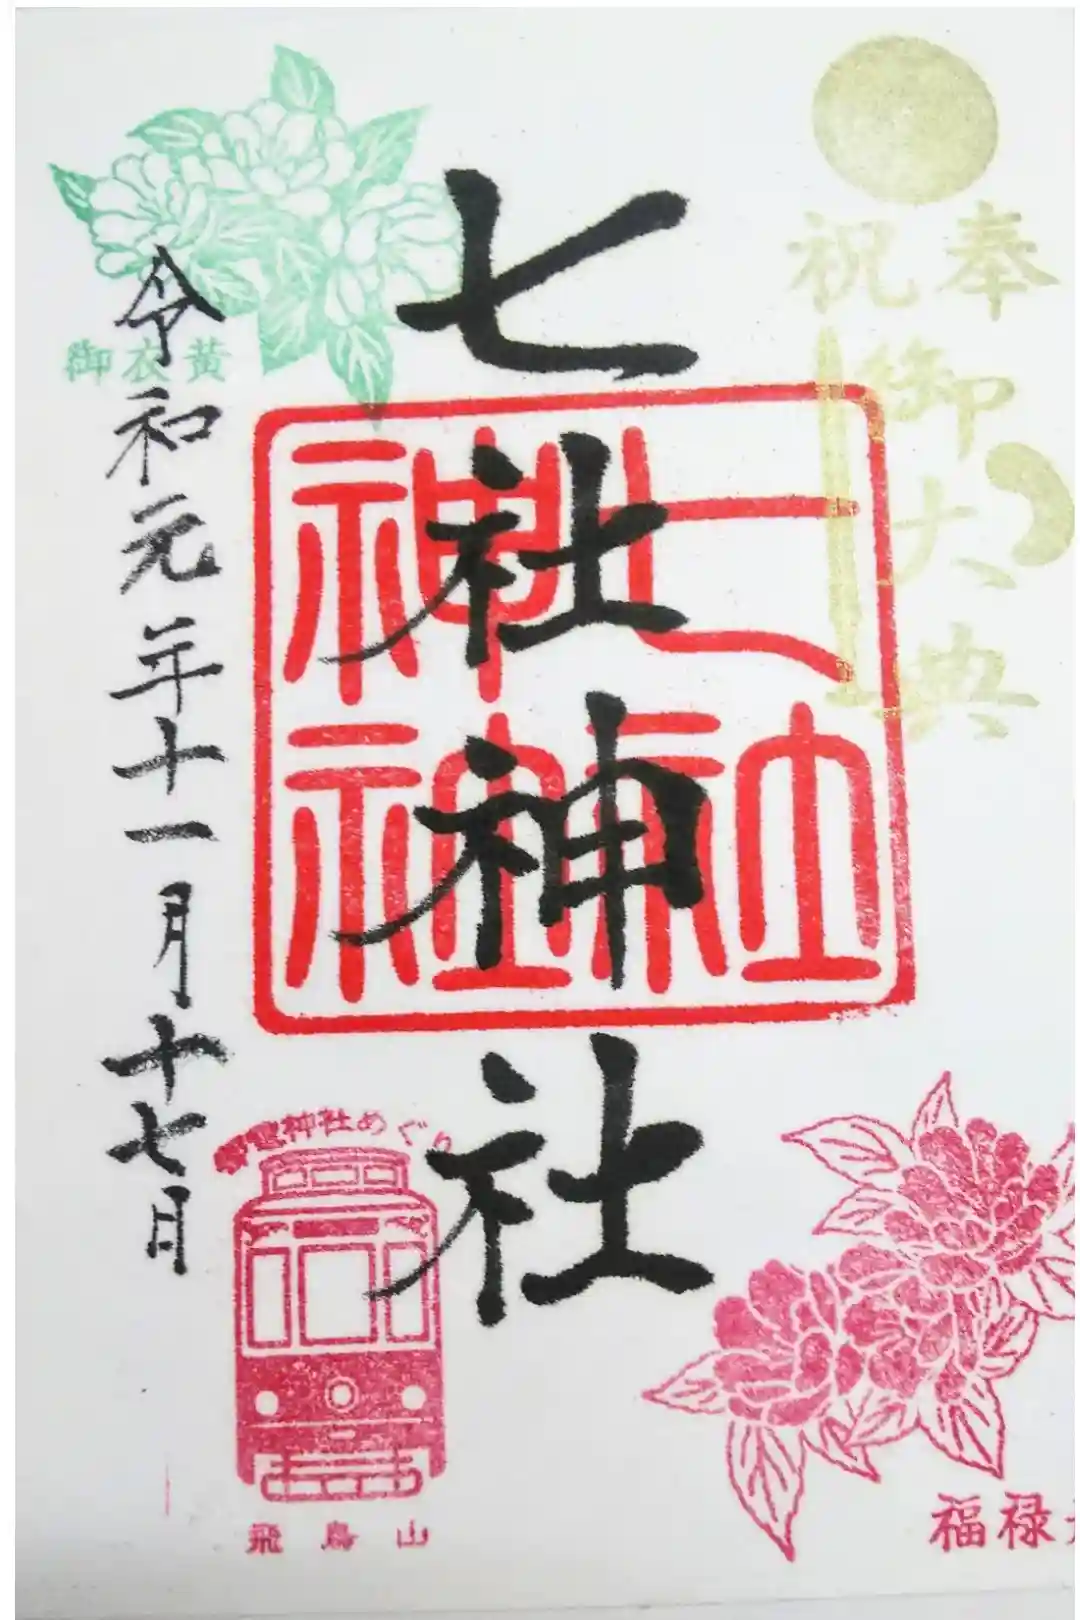 奉祝
御大典
七社神社
七社神社
令和元年十一月十七日
御衣黄
神社めぐり
飛鳥山
福禄